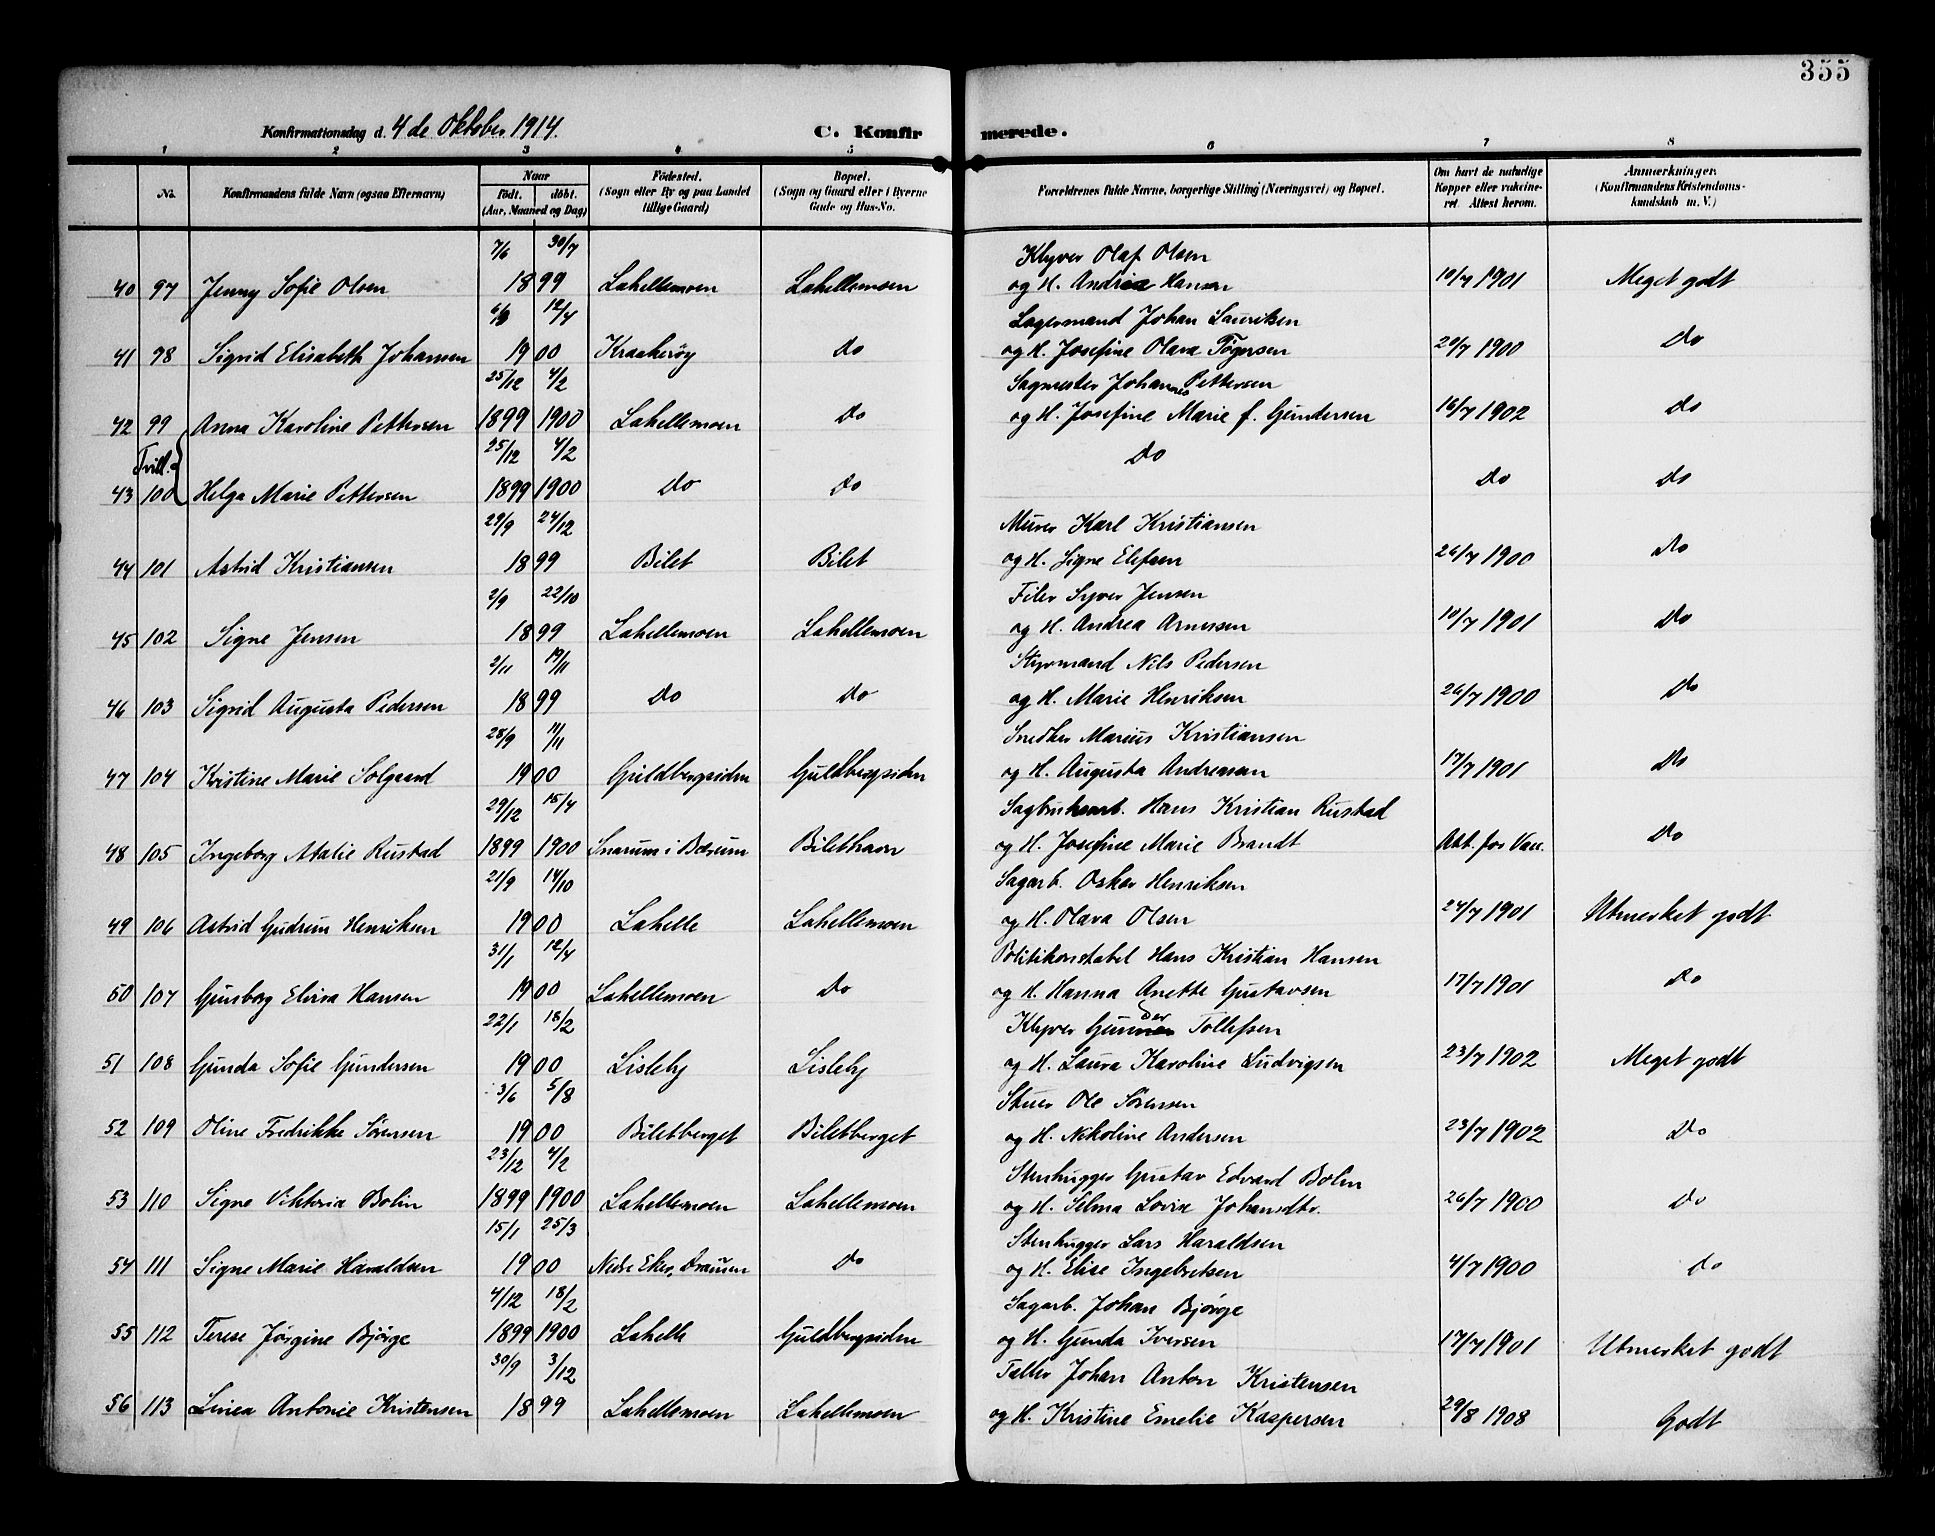 355
Konfirmationsdag d. 4 de Oktober 1914. C. Konfir merede.
1 2 3 4 5 6 7 8
No. Konfirmandens fulde Navn (ogsaa Efternavn) Naar født. døbt. (Aar, Maaned og Dag) Fødested. (Sogn eller By og paa Landet tillige Gaard) Bopæl. (Sogn og Gaard eller i Byerne Gade og Hus-No. Forældrenes fulde Navne, borgerlige Stilling (Næringsvei) og Bopæl. Om havt de naturlige Kopper eller vakcineret. Attest herom. Anmærkninger. (Konfirmandens Kristendomskundskab m. V.)
7/6 30/7 Klyver Olaf Olsen
40 97 Jenny Sofie Olsen 1899 Lahellemoen Lahellemoen og H. Andrea Hansen 10/7 1901 Meget godt
6/3 12/4 Lagermand Johan Lauritsen
41 98 Sigrid Elisabeth Johansen 1900 Kraakerøy Do og H. Josefine Olava Tøgersen 20/7 1900 Do
25/12 4/2 Sagmester Johannes Pettersen
42 99 Anna Karoline Pettersen 1899 1900 Lahellemoen Do og H. Josefine Marie f. Gundersen 16/7 1902 Do
Tvill. 25/12 4/2 Do
43 100 Helga Marie Pettersen 1899 1900 Do Do Do Do
29/9 24/12 Murer Karl Kristiansen
44 101 Astrid Kristiansen 1899 Bilet Bilet og H. Signe Elefsen 26/7 1900 Do
2/9 22/10 Filer Syver Jensen
45 102 Signe Jensen 1899 Lahellemoen Lahellemoen og H. Andrea Arnesen 10/7 1901 Do
2/11 19/11 Styrmand Nils Pedersen
46 103 Sigrid Augusta Pedersen 1899 Do Do og H. Marie Henriksen 26/7 1900 Do
28/9 11/11 Snedker Marius Kristiansen
47 104 Kristine Marie Solgaard 1900 Guldbergsiden Guldbergsiden og H. Augusta Andreasen 17/7 1901 Do
29/12 15/4 Sagbrukarb. Hans Kristian Rustad
48 105 Ingeborg Atalie Rustad 1899 1900 Snarum i Bærum Bilethavn og H. Josefine Marie Brandt Att. for Vac. Do
21/9 14/10 Sagarb. Oskar Henriksen
49 106 Astrid Gudrun Henriksen 1900 Lahelle Lahellemoen og H. Olava Olsen 24/7 1901 Utmerket godt
31/1 12/4 Politikonstabel Hans Kristian Hansen
50 107 Gunborg Elvisa Hansen 1900 Lahellemoen Do og H. Hanna Anette Gustavsen 17/7 1901 Do
22/1 18/2 Klyver Gunder Tollefsen
51 108 Gunda Sofie Gundersen 1900 Lisleby Lisleby og H. Laura Karoline Ludvigsen 23/7 1902 Meget godt
3/6 5/8 Stuer Ole Sørensen
52 109 Oline Fredrikke Sørensen 1900 Biletberget Biletberget og H. Nikoline Andersen 23/7 1902 Do
23/12 4/2 Stenhugger Gustav Edvard Bolin
53 110 Signe Viktoria Bolin 1899 1900 Lahellemoen Lahellemoen og H. Selma Lovise Johansdtr. 26/7 1900 Do
15/1 25/3 Stenhugger Lars Haraldsen
54 111 Signe Marie Haraldsen 1900 Nedre Eker, Drammen Do og H. Elise Ingebretsen 4/7 1900 Do
4/12 18/2 Sagarb. Johan Bjørge
55 112 Terese Jørgine Bjørge 1899 1900 Lahelle Guldbergsiden og H. Gunda Iversen 17/7 1901 Utmerket godt
30/9 3/12 Taller Johan Anton Kristensen
56 113 Linea Antonie Kristensen 1899 Lahellemoen Lahellemoen og H. Kristine Emelie Kaspersen 29/8 1908 Godt